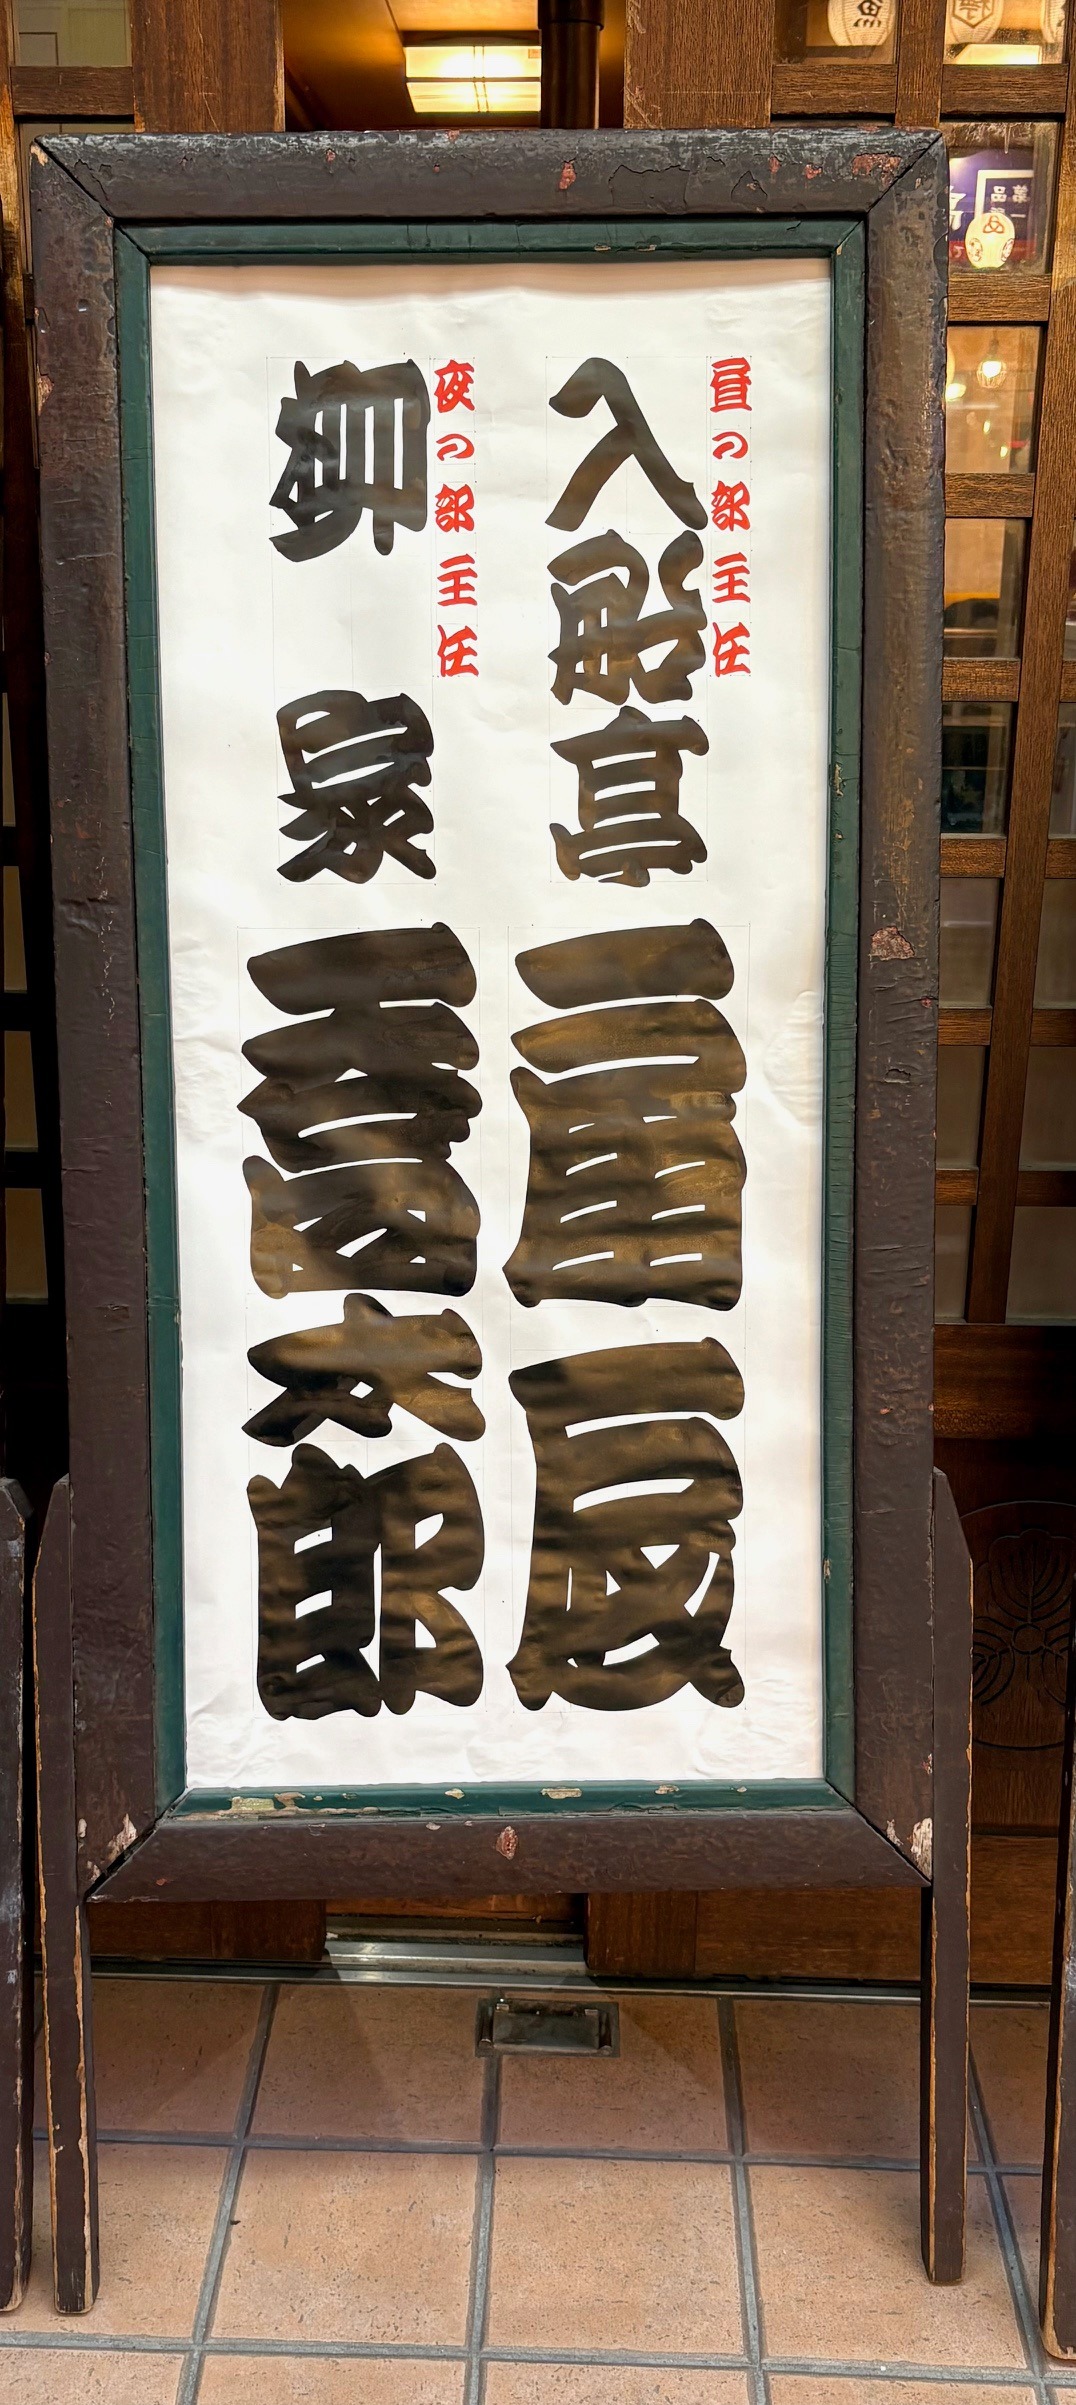 昼の部主任
入船亭扇辰
夜の部主任
柳家喬太郎